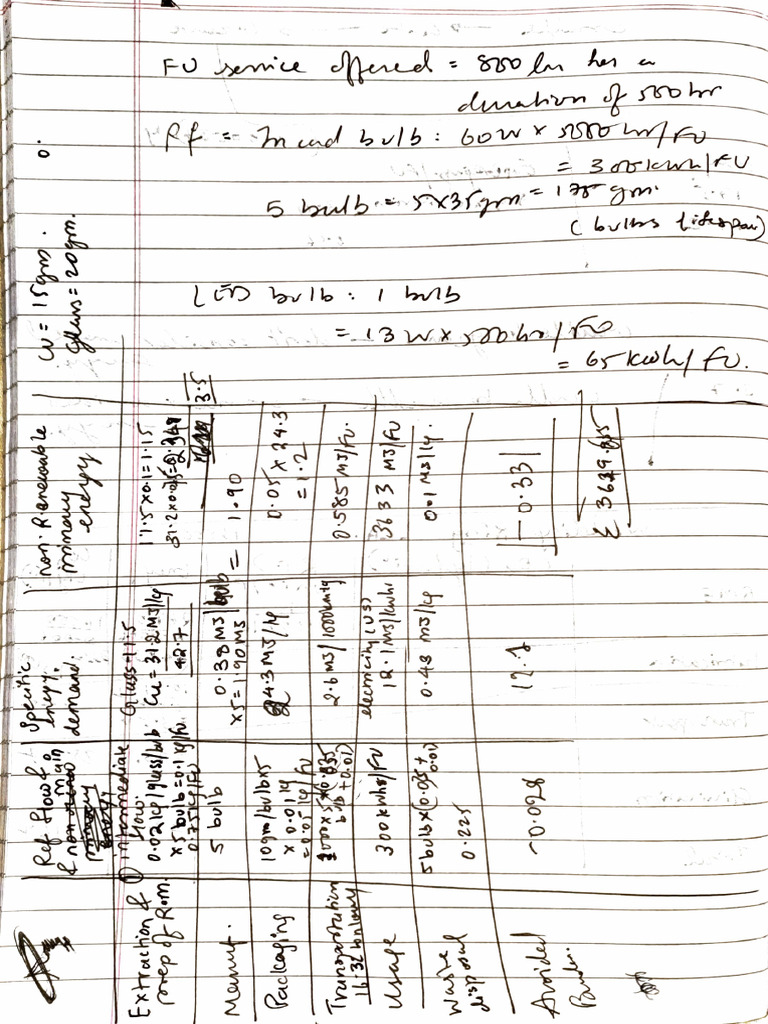 FU service offered = 800 lm for a
duration of 5000 hr
Rf = Incand bulb : 60W x 5000 hr/FU
= 300 kwh/FU
5 bulb = 5x35gm = 175 gm.
(bulbs lifespan)
LED bulb : 1 bulb
= 13 W x 5000 hr/FU
= 65 kwh/FU.
Cu = 15gm.
Glass = 20gm.
Ref flow & main
Specific energy demand
non-Renewable primary energy
Extraction & prep of R.m.
① intermediate flow:
0.02 kg glass/bulb
x5 bulb = 0.1 kg/FU
0.75 kg/FU
Glass = 11.5
Cu = 31.2 MJ/kg
42.7
11.5 x 0.1 = 1.15
3.5
Manuf.
5 bulb
0.38 MJ/bulb
x5 = 1.90 MJ
= 1.90
Packaging
10gm/bulb x5
x 0.01 kg
= 0.05 kg/FU
24.3 MJ/kg
0.05 x 24.3
= 1.2
Transportation
16-32 ton lorry
2.6 MJ/1000 km kg
0.585 MJ/FU.
Usage
300 kwhr/FU
electricity (US)
12.1 MJ/kwhr
3633 MJ/FU
Waste disposal
5 bulb x (0.035 + 0.01)
0.225
0.48 MJ/kg
0.1 MJ/kg.
Avoided
-0.028
-0.33